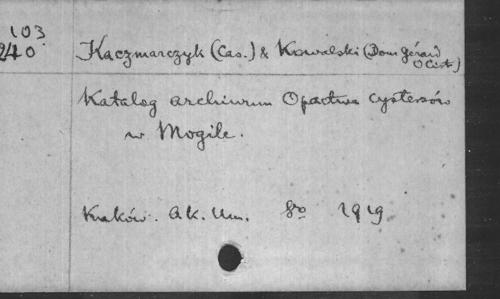 103
240
Kaczmarczyk (Cas.) & Kowalski (Dom Gérard
O Cist.)
Katalog archiwum Opactwa cystersów
w Mogile.
Kraków. Ak. Um. 8vo 1919